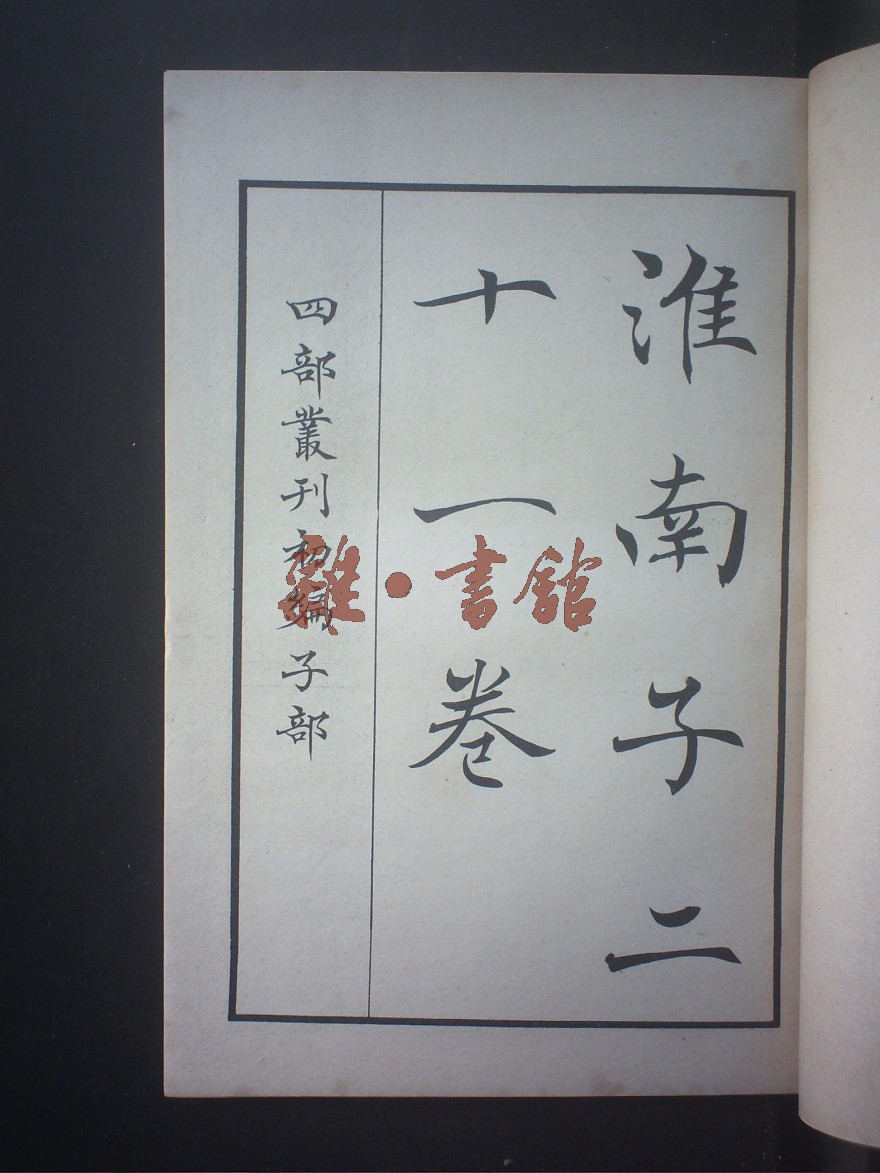 淮南子二
十一卷
四部叢刊初編子部
雞·書舘